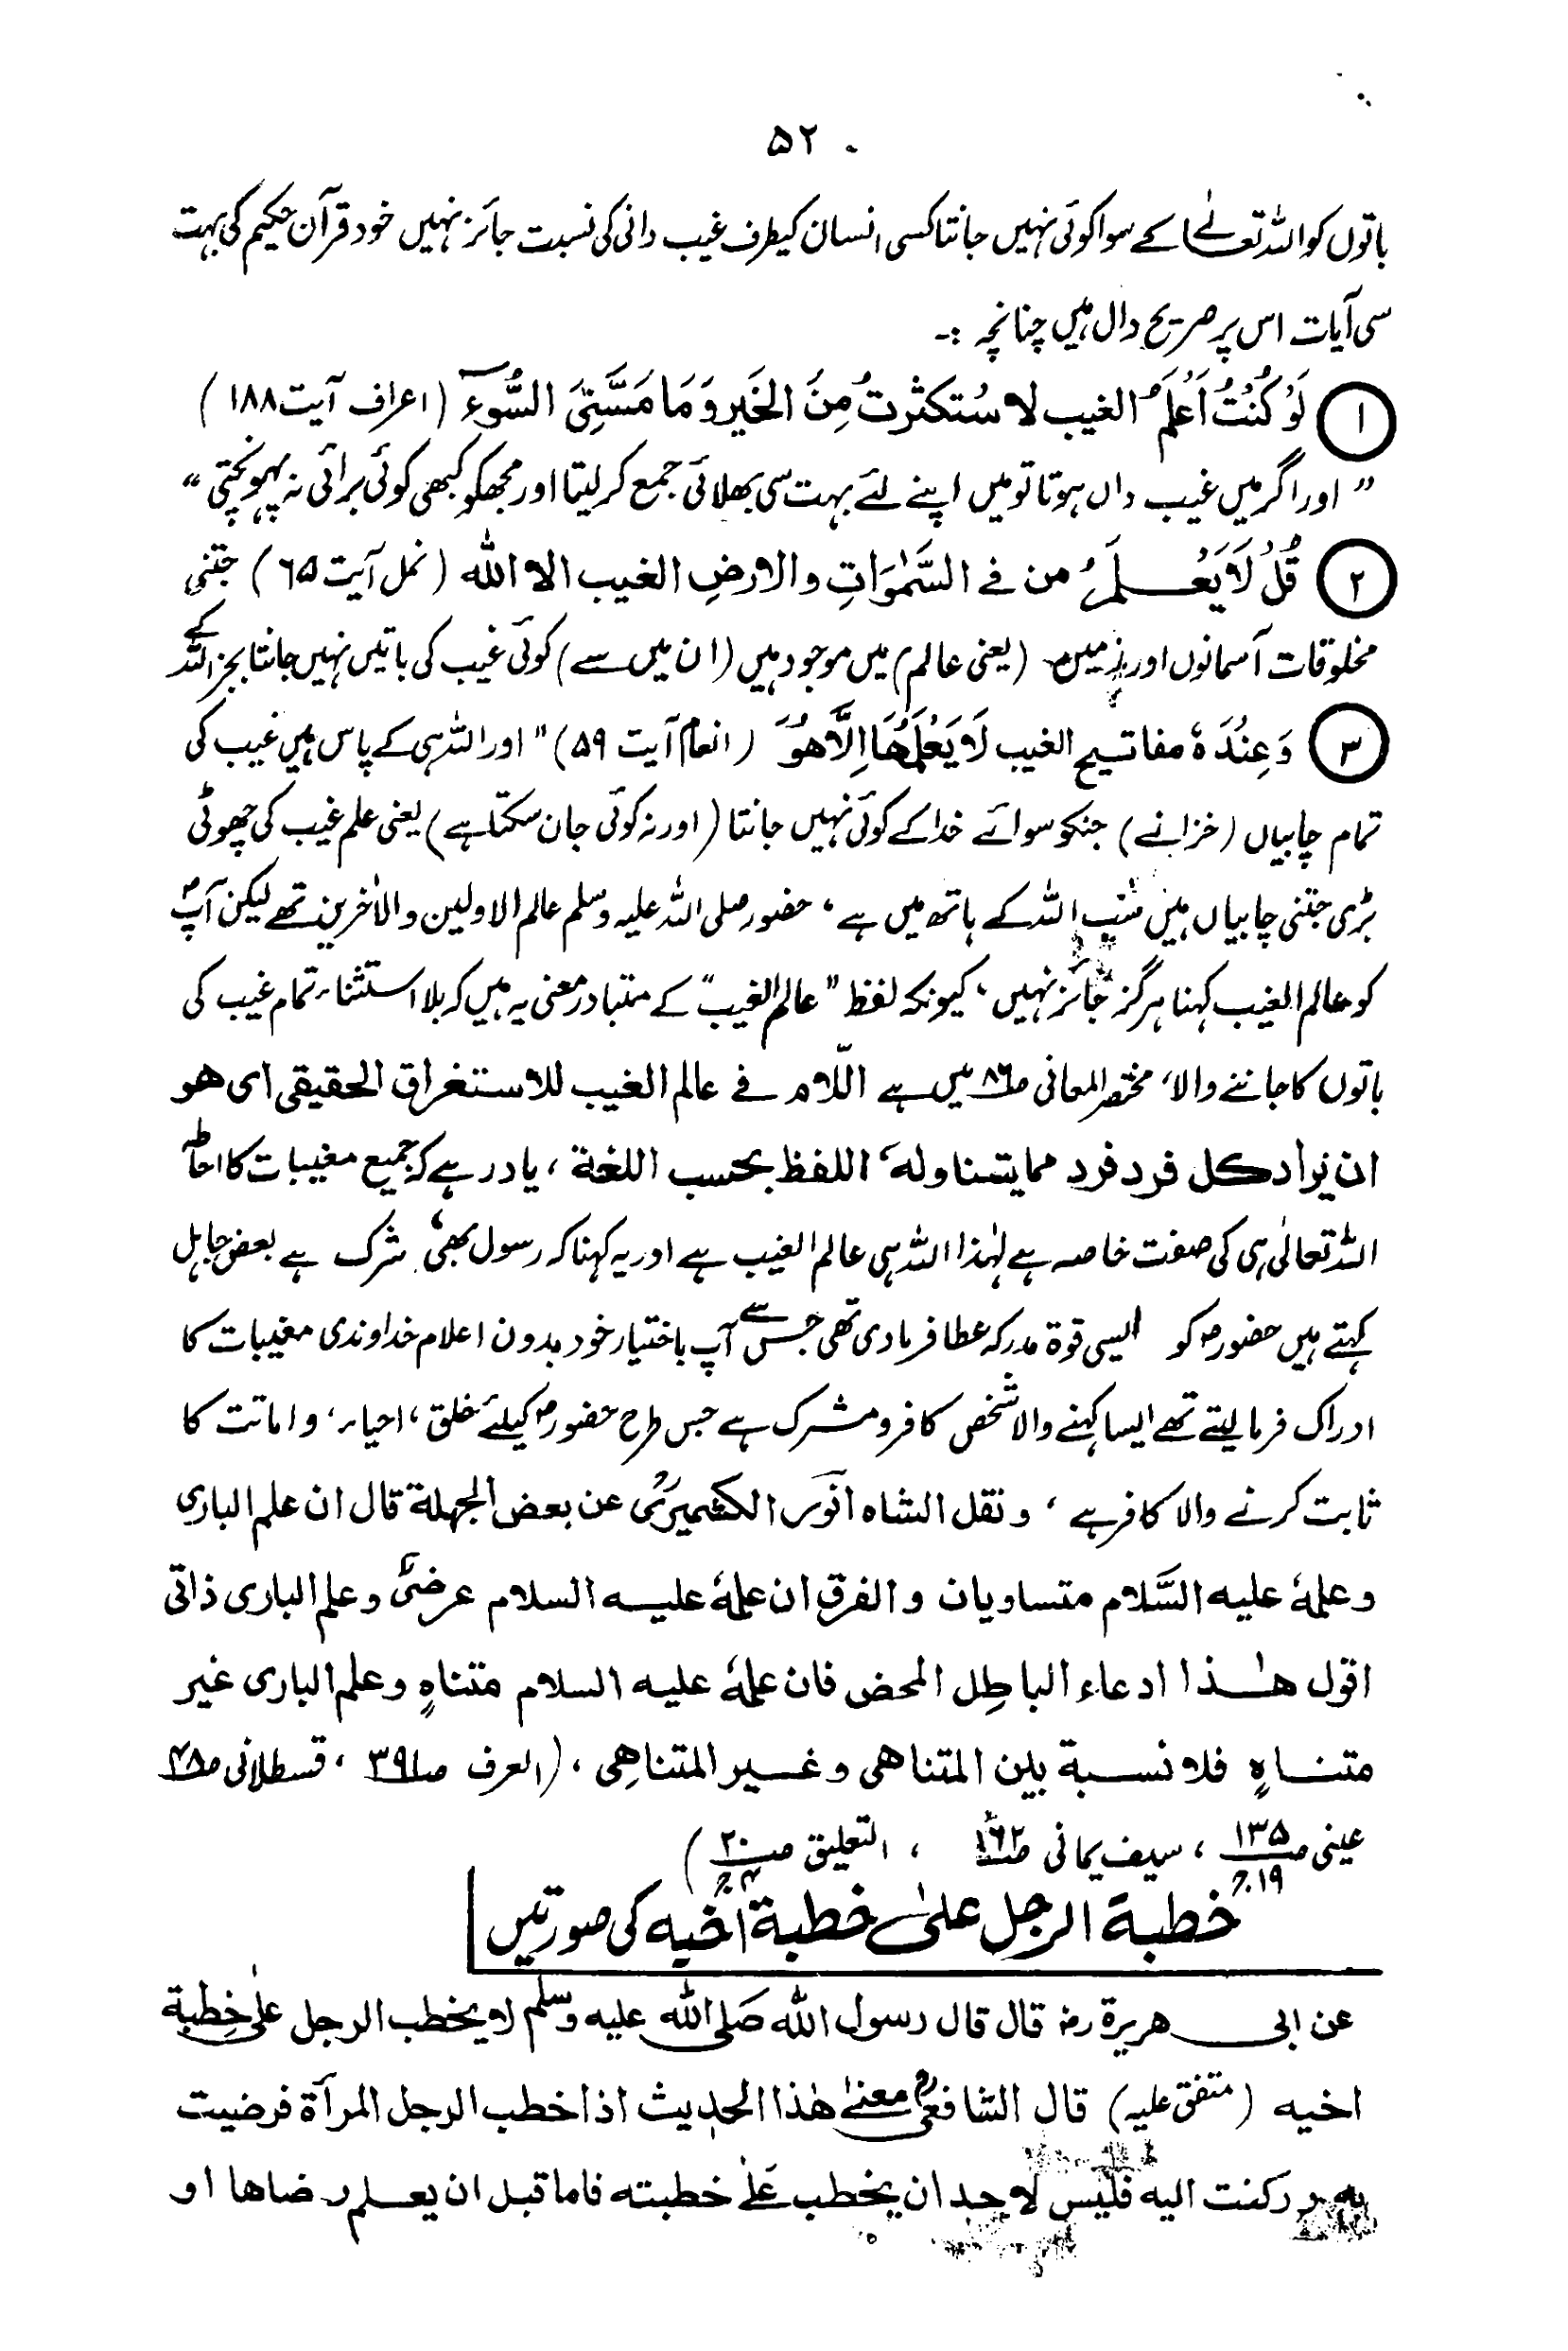 ۵۲
باتوں کو اللہ تعالےٰ کے سوا کوئی نہیں جانتا کسی انسان کیطرف غیب دانی کی نسبت جائز نہیں خود قرآن حکیم کی بہت
سی آیات اس پر صریح دال ہیں چنانچہ :۔
① لَوْ كُنْتُ اَعْلَمُ الغيب لا سْتكثرتُ مِنَ الخَير وَمَا مَسَّنِیَ السُّوءُ (اعراف آیت ۱۸۸)
” اور اگر میں غیب داں ہوتا تو میں اپنے لئے بہت سی بھلائی جمع کر لیتا اور مجھکو کبھی کوئی برائی نہ پہونچتی “
② قُلْ لَا يَعْلَمُ من فے السَّمٰوَاتِ والارضِ الغيب الا الله (نمل آیت ۶۵) جتنی
مخلوقات آسمانوں اور زمین (یعنی عالم) میں موجود ہیں (ان میں سے) کوئی غیب کی باتیں نہیں جانتا بجز اللہ کے
③ وَعِنْدَهٗ مفاتيح الغيب لَا يَعْلَمُهَا اِلَّا هُوَ (انعام آیت ۵۹) ” اور اللہ ہی کے پاس ہیں غیب کی
تمام چابیاں (خزانے) جنکو سوائے خدا کے کوئی نہیں جانتا (اور نہ کوئی جان سکتا ہے) یعنی علم غیب کی چھوٹی
بڑی جتنی چابیاں ہیں سب اللہ کے ہاتھ میں ہے، حضور صلی اللہ علیہ وسلم عالم الاولین والاٰخرین تھے لیکن آپؐ
کو عالم الغیب کہنا ہرگز جائز نہیں، کیونکہ لفظ ” عالم الغیب “ کے متبادر معنی یہ ہیں کہ بلا استثناء تمام غیب کی
باتوں کا جاننے والا، مختصر المعانی صـ۸۶ میں ہے اللّام فے عالم الغيب للاستغراق الحقيقى اى هو
ان يراد كل فرد فرد مما يتناوله اللفظ بحسب اللغة، یاد رہے کہ جمیع مغیبات کا احاطہ
اللہ تعالیٰ ہی کی صفت خاصہ ہے لہٰذا اللہ ہی عالم الغیب ہے اور یہ کہنا کہ رسول بھی، شرک ہے بعض جاہل
کہتے ہیں حضورؐ کو ایسی قوۃ مدرکہ عطا فرمادی تھی جس سے آپ باختیار خود بدون اعلام خداوندی مغیبات کا
ادراک فرما لیتے تھے ایسا کہنے والا شخص کافر و مشرک ہے جس طرح حضورؐ کیلئے خلق، احیاء، و اماتت کا
ثابت کرنے والا کافر ہے، ونقل الشاه انور الكشميرىؒ عن بعض الجهلة قال ان علم البارى
وعلمهٗ عليه السَّلام متساويان والفرق ان علمهٗ عليه السلام عرضىٌ وعلم البارى ذاتى
اقول هٰذا ادعاء الباطِل المحض فان علمهٗ عليه السلام متناهٍ وعلم البارى غير
متناهٍ فلا نسبة بين المتناهى وغير المتناهِى، (العرف صـ۳۹۱، قسطلانی صـ۴۸
عینی صـ۱۳۵ ج۱۹، سیف یمانی صـ۱۶۲، التعلیق صـ۲۰ ج۴)
خطبة الرجل علىٰ خطبة اخيه کی صورتیں
عن ابى هريرة رضـ قال قال رسول الله صَلى الله عليه وسلم لا يخطب الرجل علىٰ خِطبة
اخيه (متفق علیہ) قال الشافعىؒ معنىٰ هٰذا الحديث اذا خطب الرجل المرأة فرضيت
به وركنت اليه فليس لاحد ان يخطب عَلىٰ خطبته فاما قبل ان يعلم رضاها او